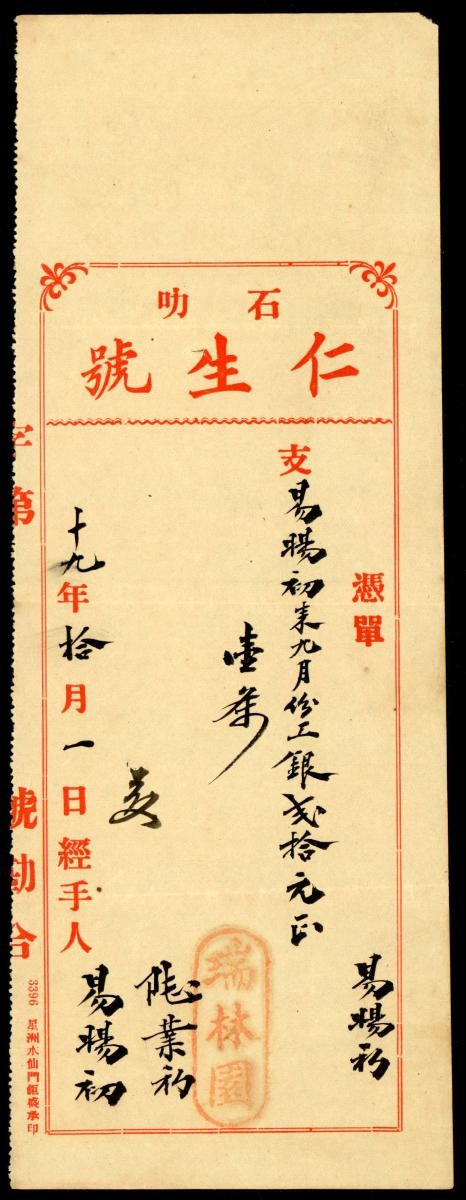 石叻
仁生號
憑單
易暘初
支易暘初來九月份工銀弍拾元正
壹單
瑞林園
十九年拾月一日經手人
易暘初
字第
號勘合
3396 星洲水仙門鉅盛承印